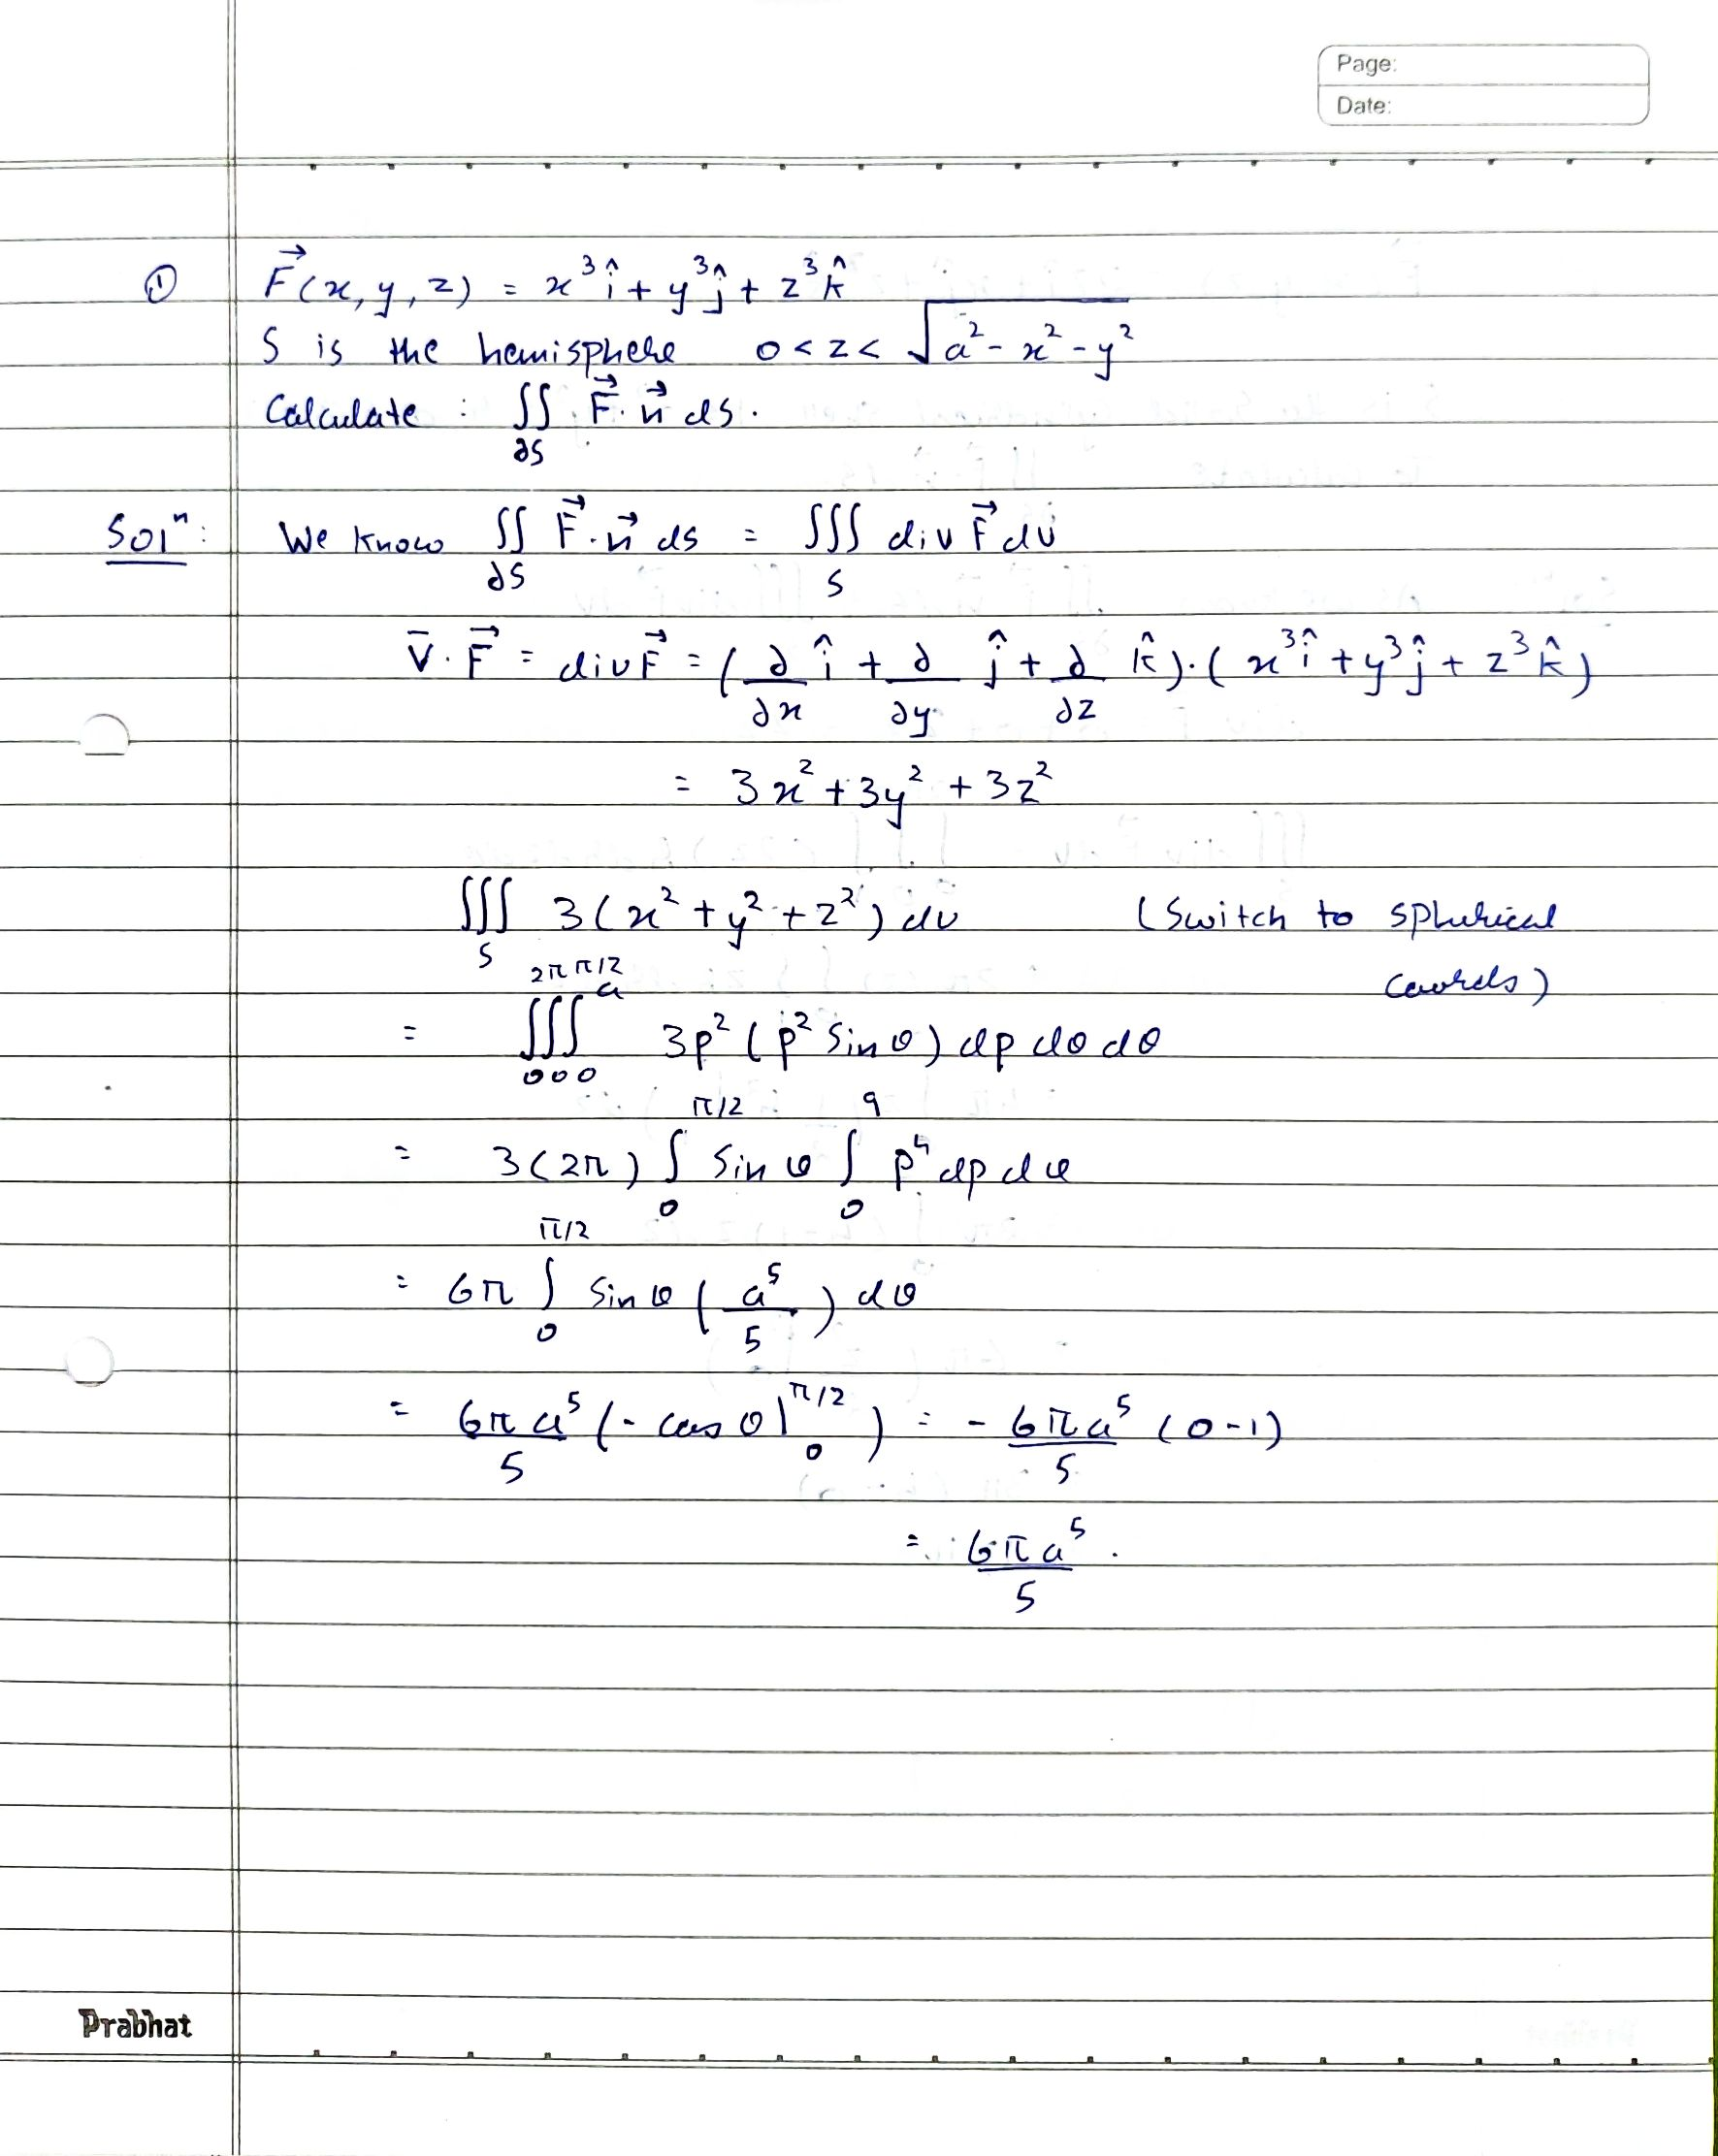 Page:
Date:
① F⃗(x, y, z) = x³î + y³ĵ + z³k̂
S is the hemisphere 0 < z < √(a² - x² - y²)
Calculate : ∬_∂S F⃗ · n⃗ ds.
Solⁿ: We know ∬_∂S F⃗ · n⃗ ds = ∭_S div F⃗ dv
∇ · F⃗ = div F⃗ = (∂/∂x î + ∂/∂y ĵ + ∂/∂z k̂) · (x³î + y³ĵ + z³k̂)
= 3x² + 3y² + 3z²
∭_S 3(x² + y² + z²) dv (Switch to spherical
coords)
= ∫_0^2π ∫_0^π/2 ∫_0^a 3p² (p² sin θ) dp dθ dθ
= 3(2π) ∫_0^π/2 sin φ ∫_0^a p⁴ dp dφ
= 6π ∫_0^π/2 sin φ (a⁵/5) dθ
= 6πa⁵/5 (- cos θ |_0^π/2) = - 6πa⁵/5 (0 - 1)
= 6πa⁵/5.
Prabhat